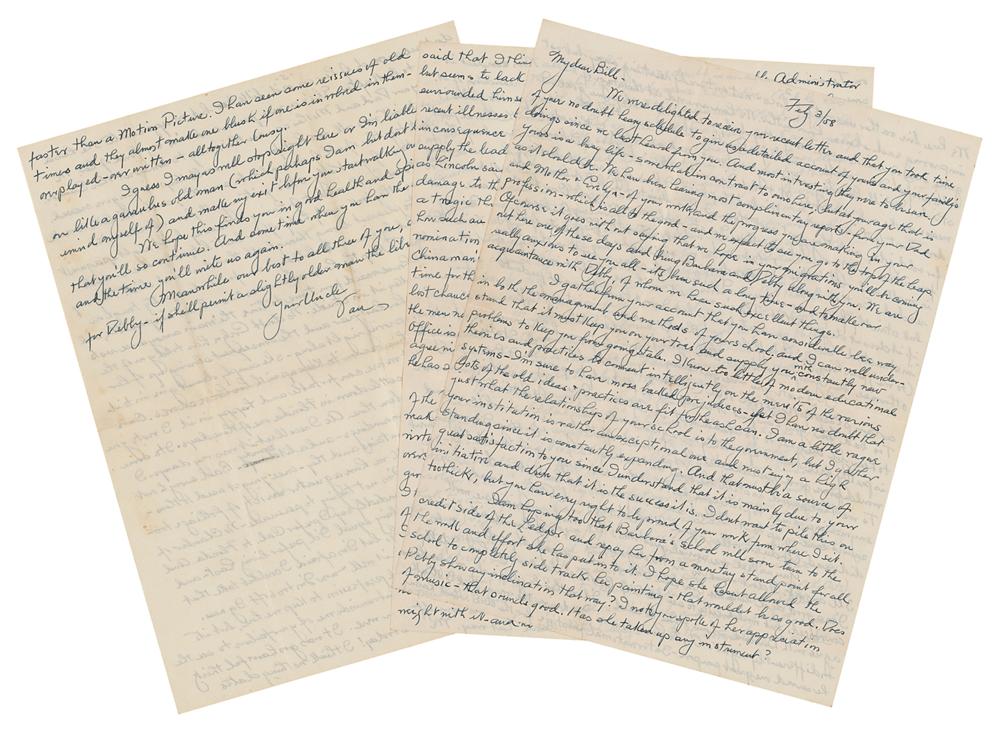 My dear Bill -
Feb 3/58
We were delighted to receive your recent letter and that you took time
of your no doubt heavy schedule to give us a detailed account of yours and your family's
doings since we last heard from you. And most interesting they were to be sure
yours is a busy life - somewhat in contrast to ours here, but at your age that is
as it should be. We have been having most complimentary reports - from your Dad
and Mother over by - of your work and the progress you are making in your
profession - which is all to the good - and we expect to see you go to the top of the heap
Of course it goes without saying that we hope in your migrations you'll be coming
out here one of these days and bring Barbara and Debby along with you. We are
really anxious to see you all - its been such a long time - and to make our
acquaintance with Debby, of whom we hear such excellent things.
I gather from your account that you have considerable lee way
in both the management and methods of your school, and I can well under-
stand that it must keep you on your toes and supply you with constantly new
problems to keep you from going stale. I know too little of modern educational
theories and practices to comment intelligently on the merits of the various
systems - I'm sure to have moss backed prejudices - yet I have no doubt that
lots of the old ideas + practices are fit for the ash can. I am a little vague
just what the relationships of your school is to the government, but I gather
your institution is rather an exceptional one and must enjoy a high
standing since it is constantly expanding. And that must be a source of
great satisfaction to you since I understand that it is mainly due to your
initiative and drive that it is the success it is. I dont want to pile this on
too thick, but you have every right to be proud of your work from where I sit.
I am hoping too that Barbara's school will soon turn to the
credit side of the Ledger and repay her from a monetary stand point for all
of the work and effort she has put into it. I hope she hasnt allowed the
school to completely side track her painting - that wouldnt be as good. Does
Debby show any inclination that way? I note you spoke of her appreciation
of music - that sounds good. Has she taken up any instrument?
might with it - and
th. Administrator
said that I thin
but seems to lack
surrounded himse
recent illnesses
in consequence
supply the lead
as Lincoln saw
damage to th
a tragic th
how such an
nomination
Chinaman
time for th
lost chance
the men no
Office is
agree in
he has
faster than a Motion Picture. I have seen some reissues of old
times and they almost make one blush if one is involved in them -
overplayed - over written - all together lousy.
I guess I may as well stop right here or I'm liable
on like a garrulous old man (which perhaps I am but dont
remind myself of) and make my exit before you start walking
We hope this finds you in good health and spi
that you'll so continue. And some time when you have the
and the time you'll write us again.
Meanwhile our best to all three of you,
for Debby - if she'll permit a slightly older man the lib
Your Uncle